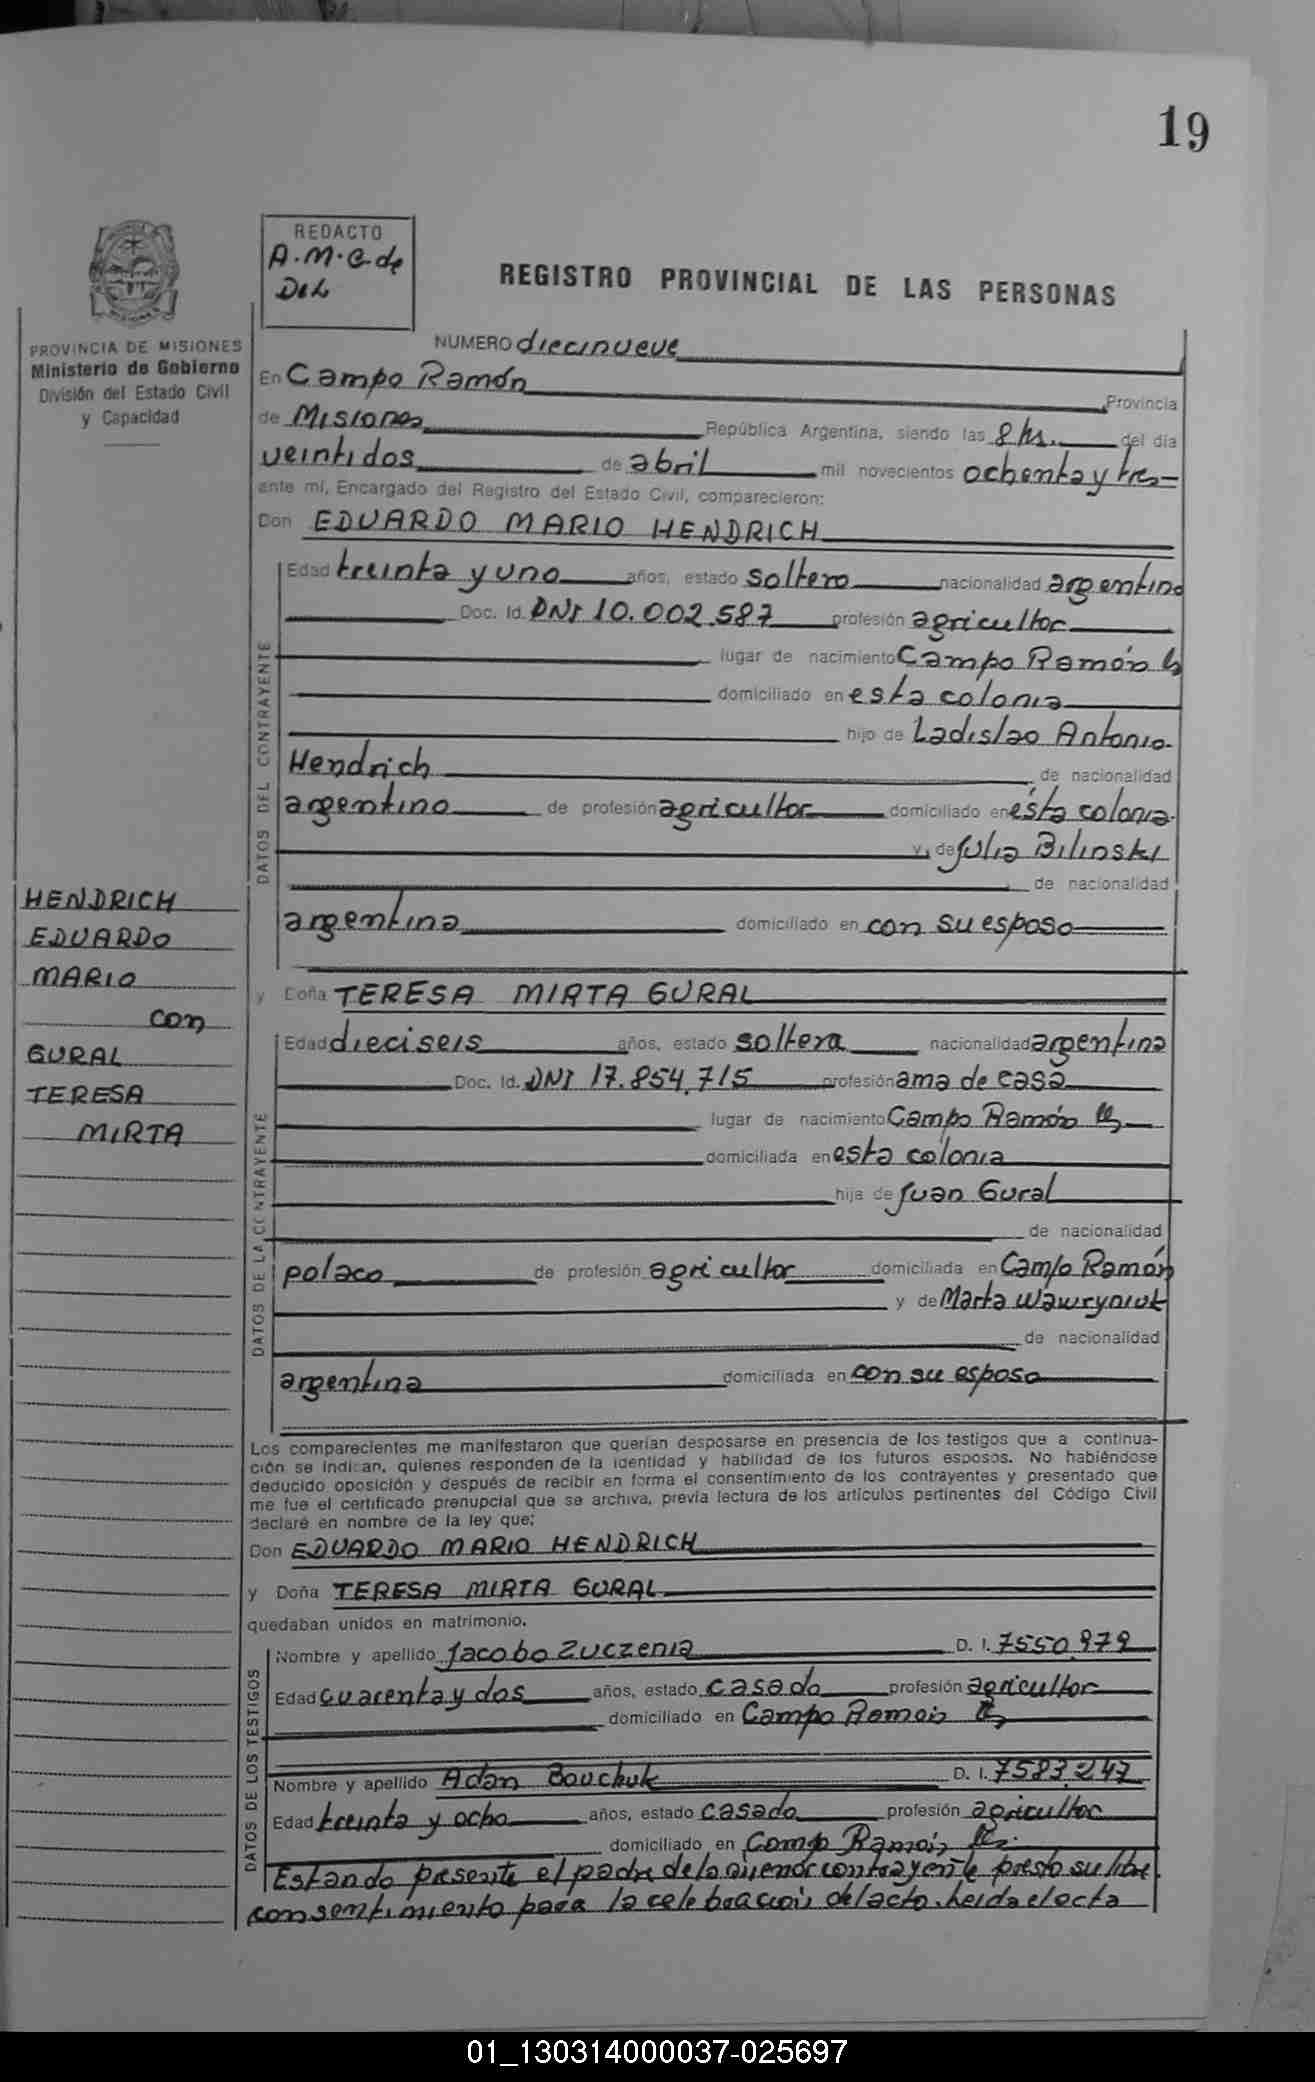 19
REDACTO
A.M.G de
DeL
REGISTRO PROVINCIAL DE LAS PERSONAS
PROVINCIA DE MISIONES
Ministerio de Gobierno
División del Estado Civil
y Capacidad
NUMERO diecinueve
En Campo Ramón Provincia
de Misiones República Argentina, siendo las 8 hs. del día
veintidos de abril mil novecientos ochenta y tres
ante mí, Encargado del Registro del Estado Civil, comparecieron:
Don EDUARDO MARIO HENDRICH
DATOS DEL CONTRAYENTE
Edad treinta y uno años, estado soltero nacionalidad argentino
Doc. Id. DNI 10.002.587 profesión agricultor
lugar de nacimiento Campo Ramón
domiciliado en esta colonia
hijo de Ladislao Antonio
Hendrich de nacionalidad
argentino de profesión agricultor domiciliado en ésta colonia
y de Julia Bilinski
de nacionalidad
argentina domiciliado en con su esposo
HENDRICH
EDUARDO
MARIO
con
GURAL
TERESA
MIRTA
y Doña TERESA MIRTA GURAL
DATOS DE LA CONTRAYENTE
Edad dieciseis años, estado soltera nacionalidad argentina
Doc. Id. DNI 17.854.715 profesión ama de casa
lugar de nacimiento Campo Ramón
domiciliada en esta colonia
hija de Juan Gural
de nacionalidad
polaco de profesión agricultor domiciliada en Campo Ramón
y de Marta Wawryniuk
de nacionalidad
argentina domiciliada en con su esposo
Los comparecientes me manifestaron que querían desposarse en presencia de los testigos que a continua-
ción se indican, quienes responden de la identidad y habilidad de los futuros esposos. No habiéndose
deducido oposición y después de recibir en forma el consentimiento de los contrayentes y presentado que
me fue el certificado prenupcial que se archiva, previa lectura de los artículos pertinentes del Código Civil
declaré en nombre de la ley que:
Don EDUARDO MARIO HENDRICH
y Doña TERESA MIRTA GURAL
quedaban unidos en matrimonio.
DATOS DE LOS TESTIGOS
Nombre y apellido Jacobo Zuczenia D. I. 7550.979
Edad cuarenta y dos años, estado casado profesión agricultor
domiciliado en Campo Ramón
Nombre y apellido Adan Bouchuk D. I. 7583.247
Edad treinta y ocho años, estado casado profesión agricultor
domiciliado en Campo Ramón
Estando presente el padre de la menor contrayente presto su libre
consentimiento para la celebración del acto. Leida el acta
01_130314000037-025697